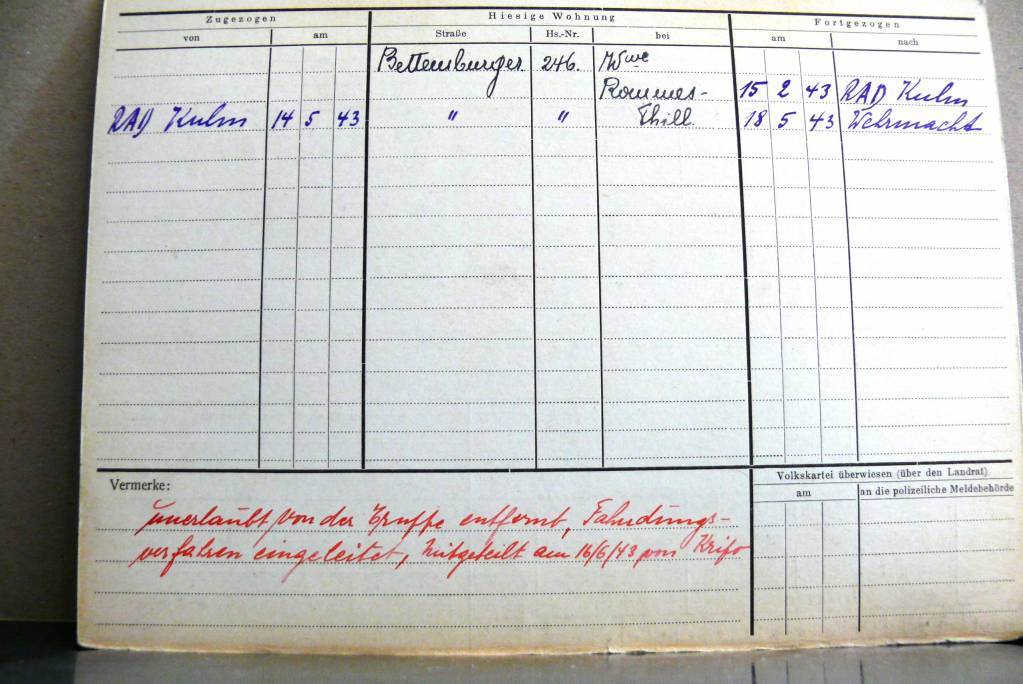 Zugezogen Hiesige Wohnung Fortgezogen
von am Straße Hs.-Nr. bei am nach
Bettemburger 246. Wwe
Rommes- 15 2 43 RAD Kulm
RAD Kulm 14 5 43 " " Thill 18 5 43 Wehrmacht
Vermerke:
Volkskartei überwiesen (über den Landrat)
am an die polizeiliche Meldebehörde
unerlaubt von der Truppe entfernt, Fahndungs-
verfahren eingeleitet, mitgeteilt am 16/6/43 von Kripo